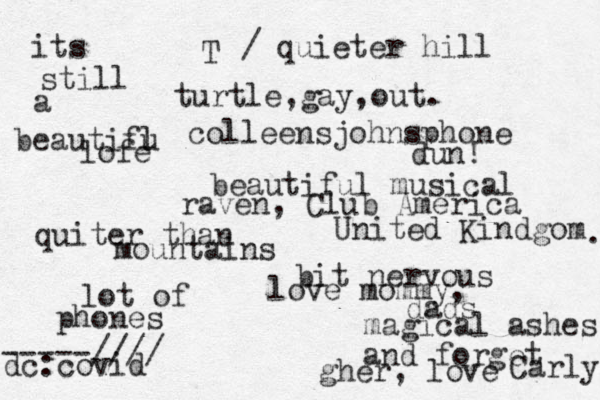 its
still
a
beautiful
lofe
T / quieter hill
turtle,gay,out.
colleensjohnsphone
dun!
beautiful musical
raven, Club America
United Kindgom.
quiter than
mountains
bit nervous
love mommy,
dads
magical ashes
and forget
gher, love Carly
lot of
phones
_____////
dc:covid